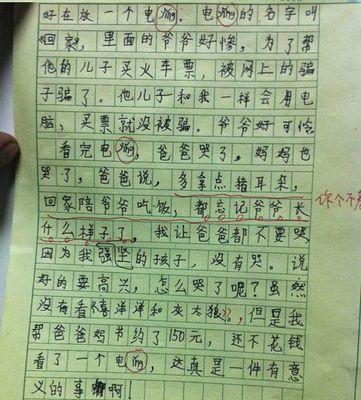 好在放一个电jing，电jing的名字叫
《回家》，里面的爷爷好惨，为了帮
他的儿子买火车票，被网上的骗
子骗了。他儿子和我一样会用电
脑，买票就没被骗。爷爷好可怜
看完电jing，爸爸哭了，妈妈也
哭了，爸爸说，多拿点猪耳朵，
回家陪爷爷吃饭，都忘记爷爷长
什么样子了，我让爸爸都不要哭
因为我强坚的孩子，没有哭。说
好的要高兴，怎么哭了呢？虽然
没有看《喜洋洋和灰太狼》，但是我
帮爸爸妈节约了150元，还不花钱
看了一个电jing，这真是一件有意
义的事啊！
你个不孝